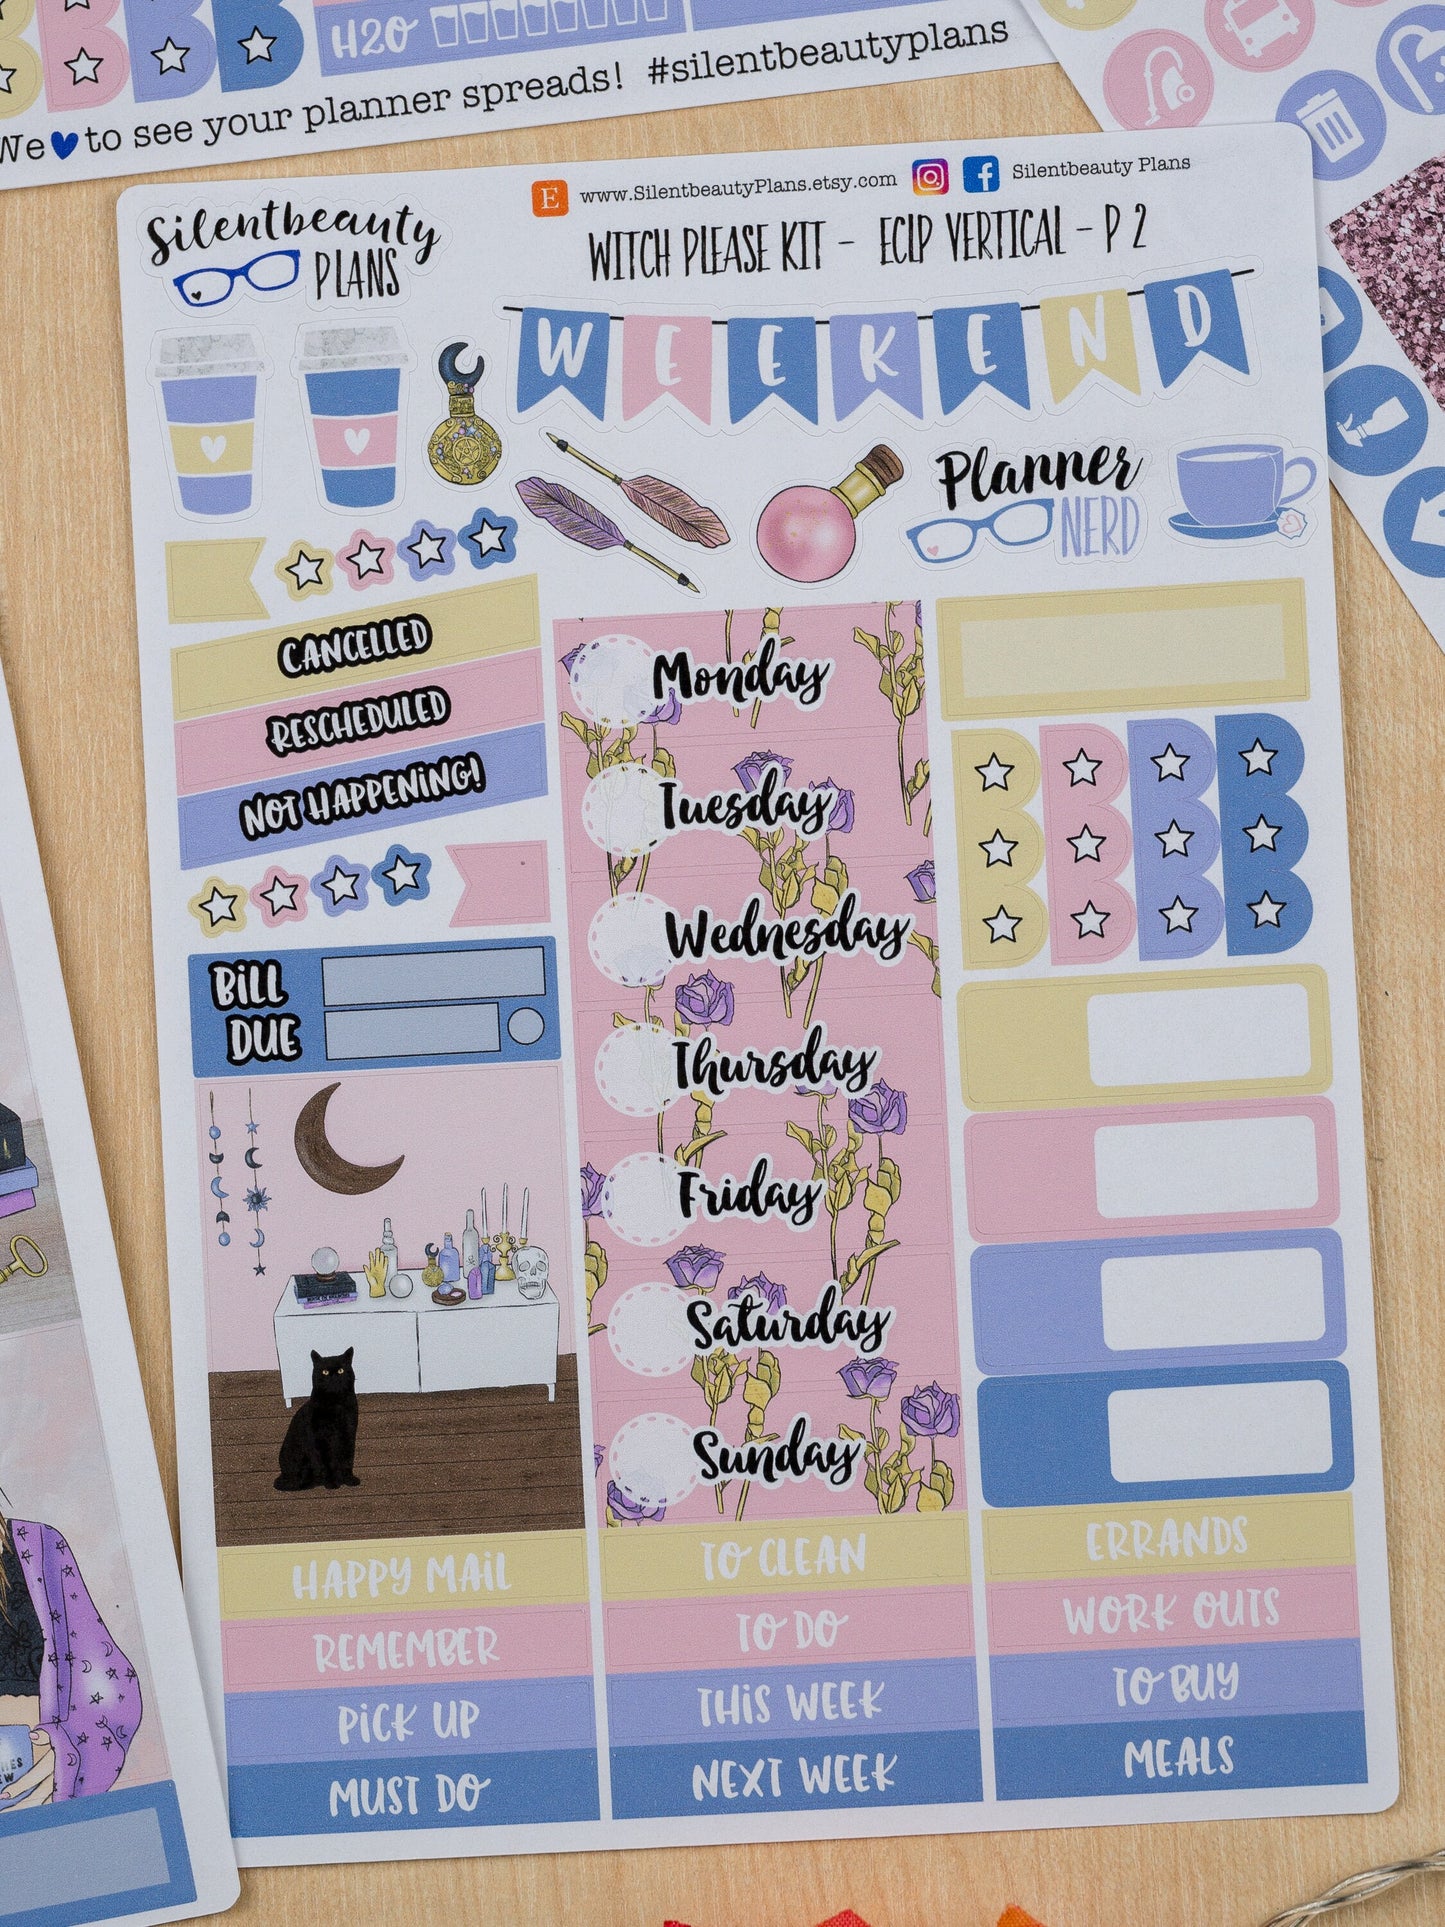 H2O
We to see your planner spreads! #silentbeautyplans
Silentbeauty
PLANS
E www.SilentbeautyPlans.etsy.com f Silentbeauty Plans
WITCH PLEASE KIT - ECLP VERTICAL - P 2
WEEKEND
Planner
NERD
CANCELLED
RESCHEDULED
NOT HAPPENING!
BILL
DUE
Monday
Tuesday
Wednesday
Thursday
Friday
Saturday
Sunday
HAPPY MAIL
REMEMBER
PICK UP
MUST DO
TO CLEAN
TO DO
THIS WEEK
NEXT WEEK
ERRANDS
WORK OUTS
TO BUY
MEALS